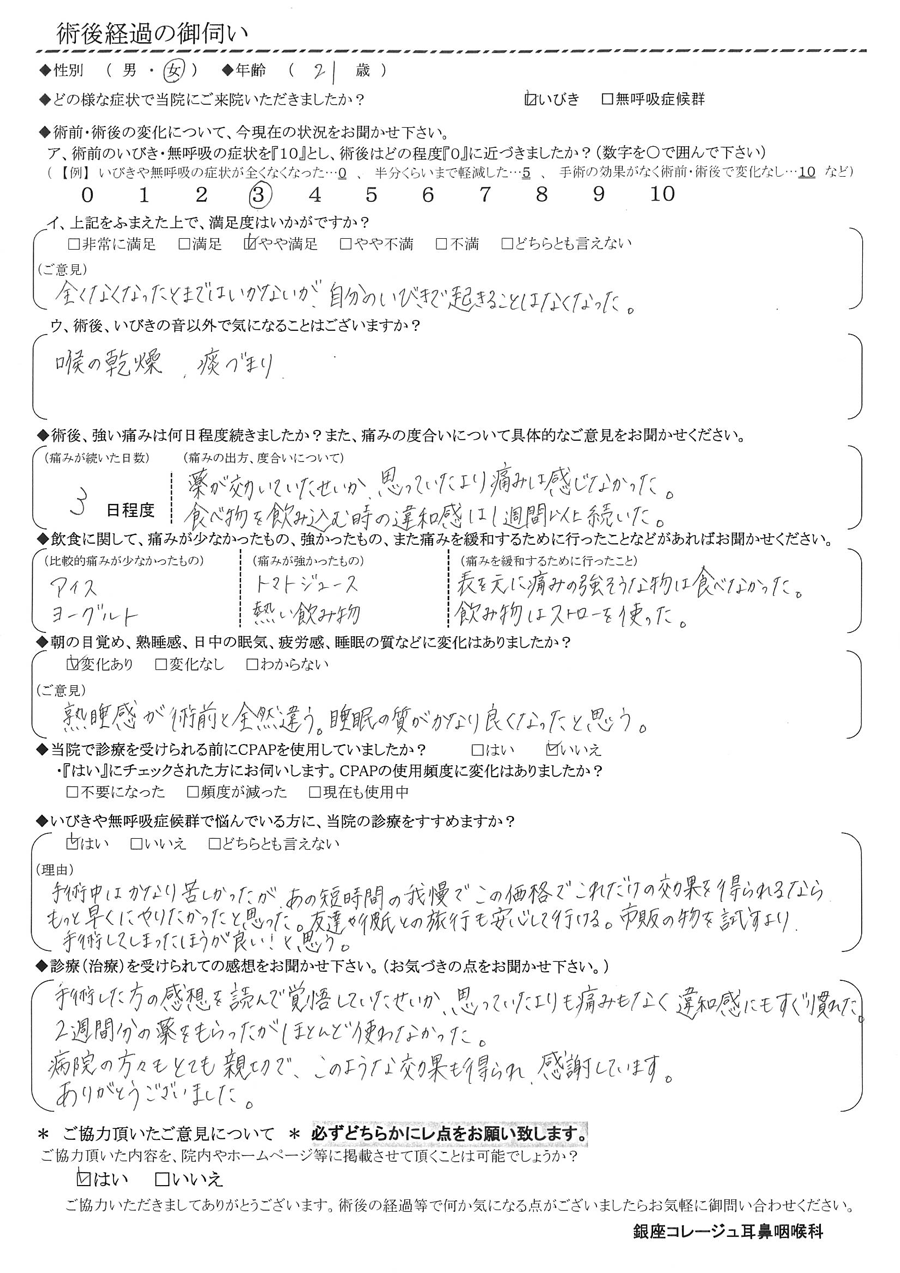 術後経過の御伺い
◆性別 （ 男 ・ 女 ） ◆年齢 （ 21 歳 ）
◆どの様な症状で当院にご来院いただきましたか？ ☑いびき □無呼吸症候群
◆術前・術後の変化について、今現在の状況をお聞かせ下さい。
ア、術前のいびき・無呼吸の症状を『10』とし、術後はどの程度『0』に近づきましたか？（数字を○で囲んで下さい）
（ 【例】 いびきや無呼吸の症状が全くなくなった…0 、 半分くらいまで軽減した…5 、 手術の効果がなく術前・術後で変化なし…10 など）
0 1 2 3 4 5 6 7 8 9 10
イ、上記をふまえた上で、満足度はいかがですか？
□非常に満足 □満足 ☑やや満足 □やや不満 □不満 □どちらとも言えない
（ご意見）
全くなくなったとまではいかないが、自分のいびきで起きることはなくなった。
ウ、術後、いびきの音以外で気になることはございますか？
喉の乾燥 、痰づまり
◆術後、強い痛みは何日程度続きましたか？また、痛みの度合いについて具体的なご意見をお聞かせください。
（痛みが続いた日数） （痛みの出方、度合いについて）
薬が効いていたせいか、思っていたより痛みは感じなかった。
3 日程度
食べ物を飲み込む時の違和感は1週間以上続いた。
◆飲食に関して、痛みが少なかったもの、強かったもの、また痛みを緩和するために行ったことなどがあればお聞かせください。
（比較的痛みが少なかったもの） （痛みが強かったもの） （痛みを緩和するために行ったこと）
アイス トマトジュース 表を元に痛みの強そうな物は食べなかった。
ヨーグルト 熱い飲み物 飲み物はストローを使った。
◆朝の目覚め、熟睡感、日中の眠気、疲労感、睡眠の質などに変化はありましたか？
☑変化あり □変化なし □わからない
（ご意見）
熟睡感が術前と全然違う。睡眠の質がかなり良くなったと思う。
◆当院で診療を受けられる前にCPAPを使用していましたか？ □はい ☑いいえ
・『はい』にチェックされた方にお伺いします。CPAPの使用頻度に変化はありましたか？
□不要になった □頻度が減った □現在も使用中
◆いびきや無呼吸症候群で悩んでいる方に、当院の診療をすすめますか？
☑はい □いいえ □どちらとも言えない
（理由）
手術中はかなり苦しかったが、あの短時間の我慢でこの価格でこれだけの効果を得られるなら
もっと早くにやりたかったと思った。友達や彼氏との旅行も安心して行ける。市販の物を試すより、
手術してしまったほうが良い！と思う。
◆診療（治療）を受けられての感想をお聞かせ下さい。（お気づきの点をお聞かせ下さい。）
手術した方の感想を読んで覚悟していたせいか、思っていたよりも痛みもなく違和感にもすぐ慣れた。
2週間分の薬をもらったがほとんど使わなかった。
病院の方々もとても親切で、このような効果も得られ、感謝しています。
ありがとうございました。
＊ ご協力頂いたご意見について ＊ 必ずどちらかにレ点をお願い致します。
ご協力頂いた内容を、院内やホームページ等に掲載させて頂くことは可能でしょうか？
☑はい □いいえ
ご協力いただきましてありがとうございます。術後の経過等で何か気になる点がございましたらお気軽に御問い合わせください。
銀座コレージュ耳鼻咽喉科